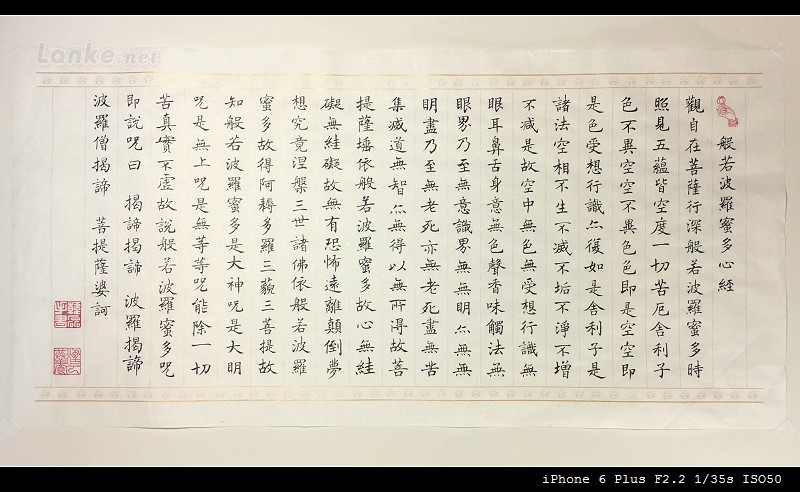 Lanke.net
般若波羅蜜多心經
觀自在菩薩行深般若波羅蜜多時
照見五蘊皆空度一切苦厄舍利子
色不異空空不異色色即是空空即
是色受想行識亦復如是舍利子是
諸法空相不生不滅不垢不淨不增
不減是故空中無色無受想行識無
眼耳鼻舌身意無色聲香味觸法無
眼界乃至無意識界無無明亦無無
明盡乃至無老死亦無老死盡無苦
集滅道無智亦無得以無所得故菩
提薩埵依般若波羅蜜多故心無絓
礙無絓礙故無有恐怖遠離顛倒夢
想究竟涅槃三世諸佛依般若波羅
蜜多故得阿耨多羅三藐三菩提故
知般若波羅蜜多是大神呪是大明
呪是無上呪是無等等呪能除一切
苦真實不虛故說般若波羅蜜多呪
即說呪曰 揭諦揭諦 波羅揭諦
波羅僧揭諦 菩提薩婆訶
iPhone 6 Plus F2.2 1/35s ISO50